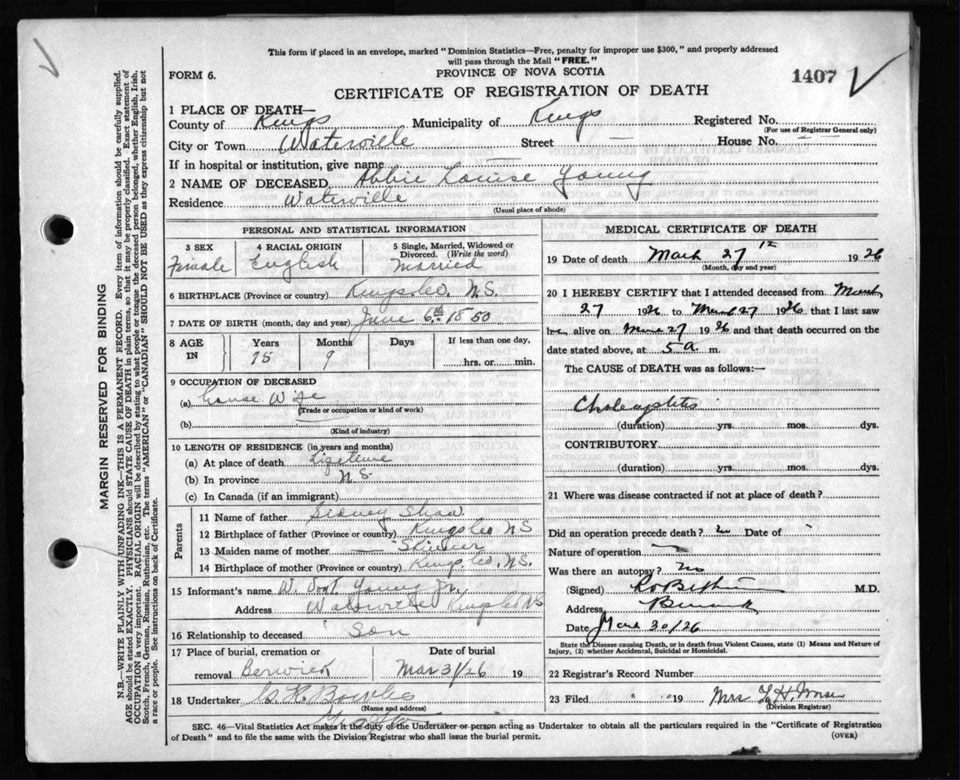 This form if placed in an envelope, marked "Dominion Statistics—Free, penalty for improper use $300," and properly addressed
will pass through the Mail "FREE."
FORM 6.
PROVINCE OF NOVA SCOTIA
1407
CERTIFICATE OF REGISTRATION OF DEATH
1 PLACE OF DEATH—
County of Kings Municipality of Kings Registered No.
(For use of Registrar General only)
City or Town Waterville Street — House No. —
If in hospital or institution, give name —
2 NAME OF DECEASED Abbie Louise Young
Residence Waterville
(Usual place of abode)
PERSONAL AND STATISTICAL INFORMATION
3 SEX 4 RACIAL ORIGIN 5 Single, Married, Widowed or Divorced. (Write the word)
Female English Married
6 BIRTHPLACE (Province or country) Kings Co. N.S.
7 DATE OF BIRTH (month, day and year) June 6th 1850
8 AGE IN Years Months Days If less than one day,
75 9 hrs. or min.
9 OCCUPATION OF DECEASED
(a) House Wife
(Trade or occupation or kind of work)
(b)
(Kind of industry)
10 LENGTH OF RESIDENCE (in years and months)
(a) At place of death Lifetime
(b) In province N.S.
(c) In Canada (if an immigrant)
Parents
11 Name of father Sidney Shaw
12 Birthplace of father (Province or country) Kings Co NS
13 Maiden name of mother — Skinner
14 Birthplace of mother (Province or country) Kings Co. N.S.
15 Informant's name W. Young Jr.
Address Waterville Kings Co NS
16 Relationship to deceased Son
17 Place of burial, cremation or removal Berwick
Date of burial Mar 31/26 19
18 Undertaker
(Name and address)
MEDICAL CERTIFICATE OF DEATH
19 Date of death March 27th 1926
(Month, day and year)
20 I HEREBY CERTIFY that I attended deceased from March
27 1926 to March 27 1926 that I last saw
her alive on March 27 1926 and that death occurred on the
date stated above, at 5 a m.
The CAUSE of DEATH was as follows:—
(duration) yrs. mos. dys.
CONTRIBUTORY.
(duration) yrs. mos. dys.
21 Where was disease contracted if not at place of death?
Did an operation precede death? no Date of
Nature of operation
Was there an autopsy? no
(Signed) M.D.
Address Berwick
Date March 30/26
State the Disease causing Death, or in death from Violent Causes, state (1) Means and Nature of
Injury, (2) whether Accidental, Suicidal or Homicidal.
22 Registrar's Record Number
23 Filed 19 Mrs
(Division Registrar)
SEC. 46—Vital Statistics Act makes it the duty of the Undertaker or person acting as Undertaker to obtain all the particulars required in the "Certificate of Registration
of Death" and to file the same with the Division Registrar who shall issue the burial permit.
(OVER)
MARGIN RESERVED FOR BINDING
N.B.—WRITE PLAINLY WITH UNFADING INK—THIS IS A PERMANENT RECORD. Every item of information should be carefully supplied.
AGE should be stated EXACTLY. PHYSICIANS should STATE CAUSE OF DEATH in plain terms, so that it may be properly classified. Exact statement of
OCCUPATION is very important. RACIAL ORIGIN will be described by stating to what people or tongue the deceased person belonged, whether English, Irish,
Scotch, French, German, Russian, Ruthenian, etc. The terms "AMERICAN" or "CANADIAN" SHOULD NOT BE USED as they express citizenship but not
a race or people. See instructions on back of Certificate.